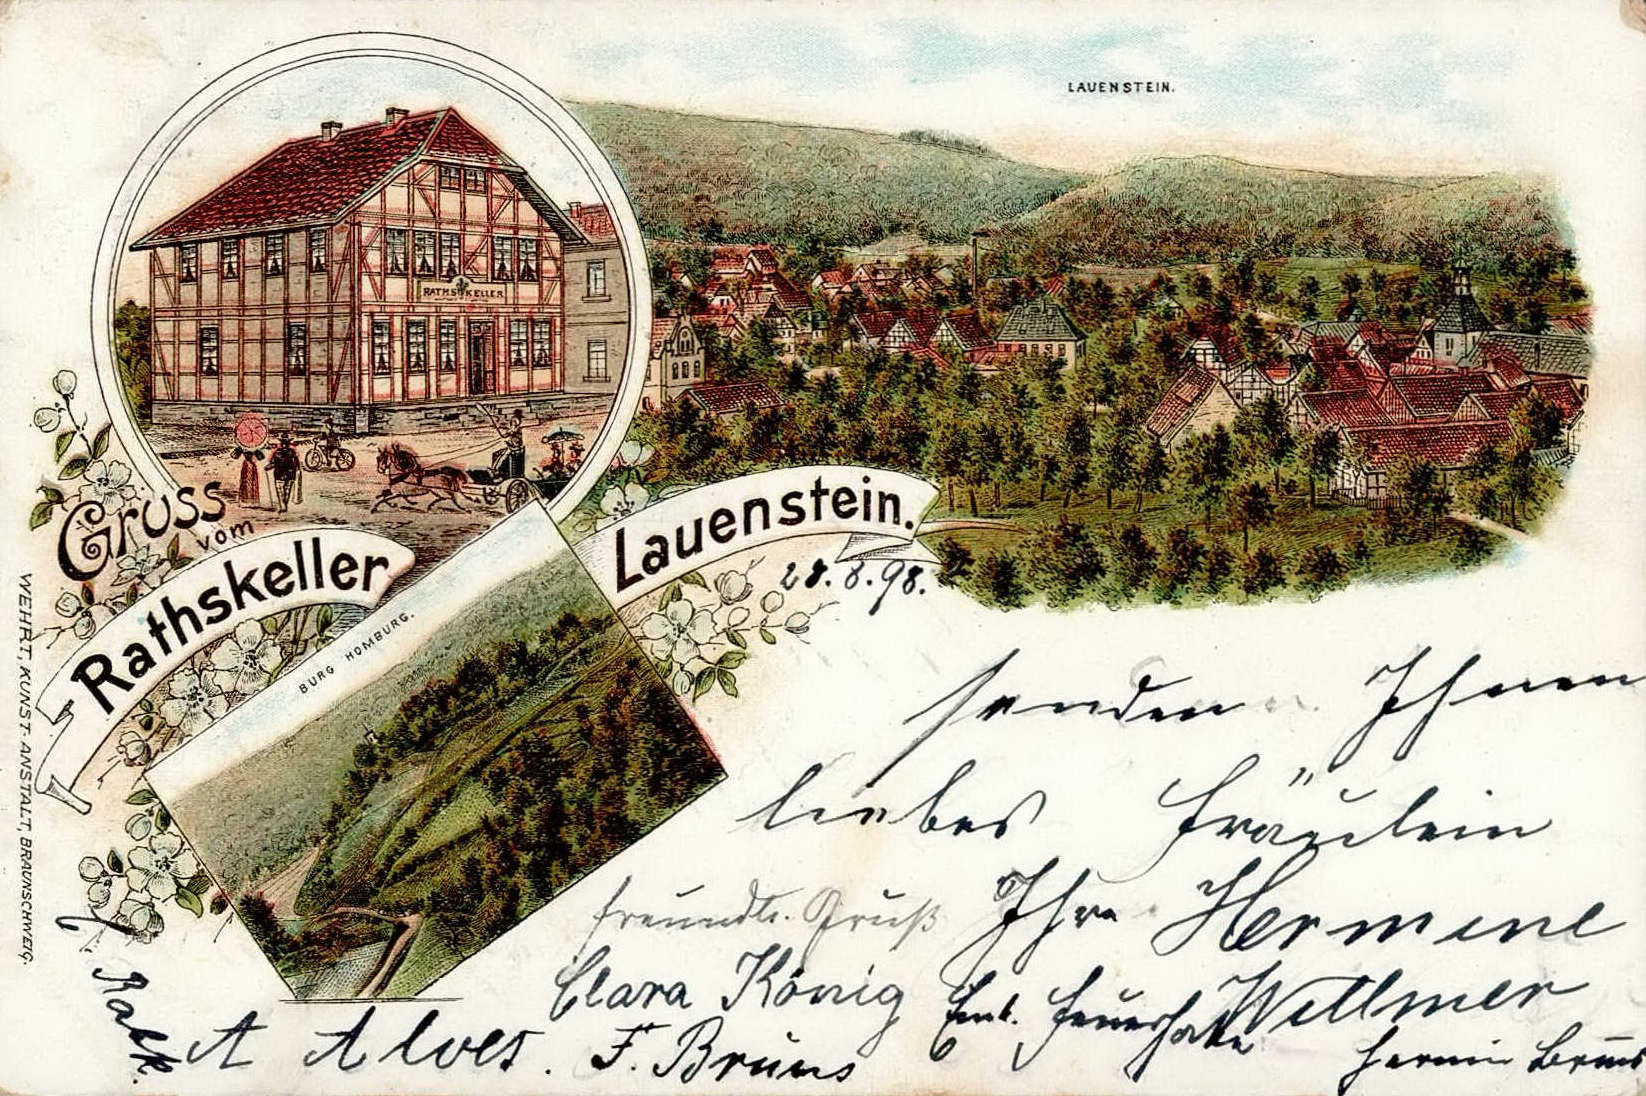 LAUENSTEIN.
RATHSKELLER
Gruss
vom
Rathskeller
Lauenstein.
BURG HOMBURG.
WEHRT, KUNST-ANSTALT, BRAUNSCHWEIG.
28.8.98.
senden Ihnen
liebes Fräulein
freundl. Gruß
Ihre Hermine
Clara König
Willmer
A Alves.
F. Bruns